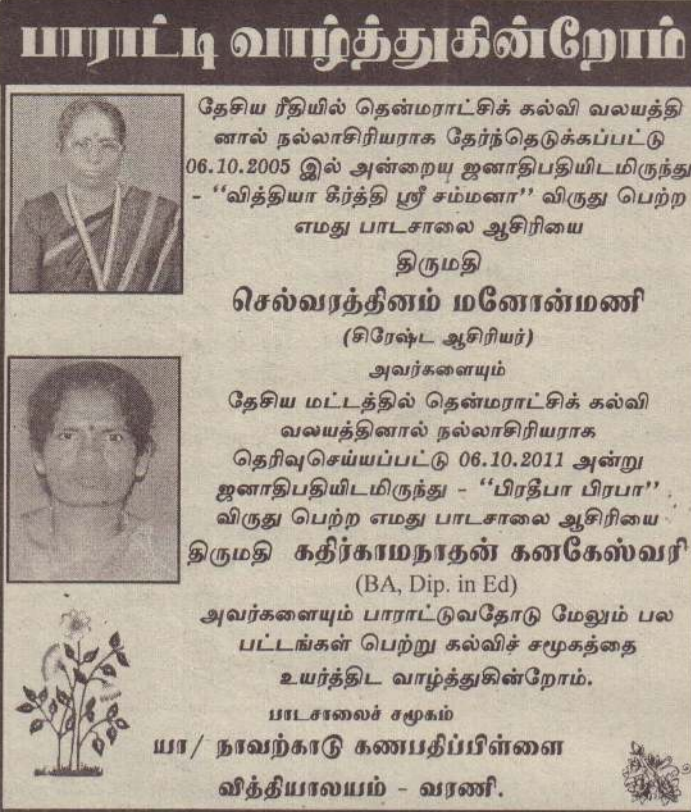 பாராட்டி வாழ்த்துகின்றோம்
தேசிய ரீதியில் தென்மராட்சிக் கல்வி வலயத்தி
னால் நல்லாசிரியராக தேர்ந்தெடுக்கப்பட்டு
06.10.2005 இல் அன்றைய ஜனாதிபதியிடமிருந்து
- “வித்தியா கீர்த்தி ஸ்ரீ சம்மனா” விருது பெற்ற
எமது பாடசாலை ஆசிரியை
திருமதி
செல்வரத்தினம் மனோன்மணி
(சிரேஷ்ட ஆசிரியர்)
அவர்களையும்
தேசிய மட்டத்தில் தென்மராட்சிக் கல்வி
வலயத்தினால் நல்லாசிரியராக
தெரிவுசெய்யப்பட்டு 06.10.2011 அன்று
ஜனாதிபதியிடமிருந்து - “பிரதீபா பிரபா”
விருது பெற்ற எமது பாடசாலை ஆசிரியை
திருமதி கதிர்காமநாதன் கனகேஸ்வரி
(BA, Dip. in Ed)
அவர்களையும் பாராட்டுவதோடு மேலும் பல
பட்டங்கள் பெற்று கல்விச் சமூகத்தை
உயர்த்திட வாழ்த்துகின்றோம்.
பாடசாலைச் சமூகம்
யா/ நாவற்காடு கணபதிப்பிள்ளை
வித்தியாலயம் - வரணி.